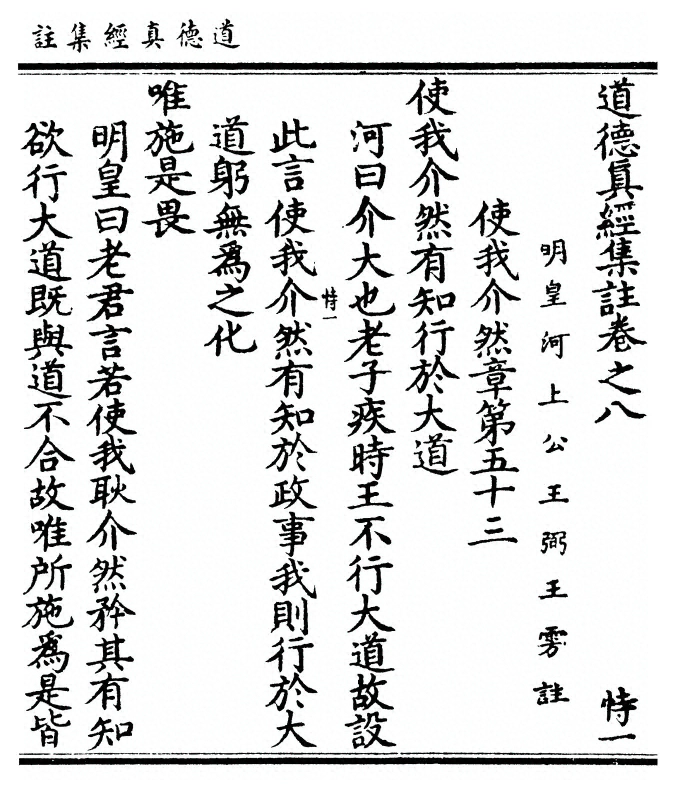 道德真經集註
道德眞經集註卷之八 恃一
明皇河上公王弼王雱註
使我介然章第五十三
使我介然有知行於大道
河曰介大也老子疾時王不行大道故設
恃一
此言使我介然有知於政事我則行於大
道躬無爲之化
唯施是畏
明皇曰老君言若使我耿介然矜其有知
欲行大道既與道不合故唯所施爲是皆